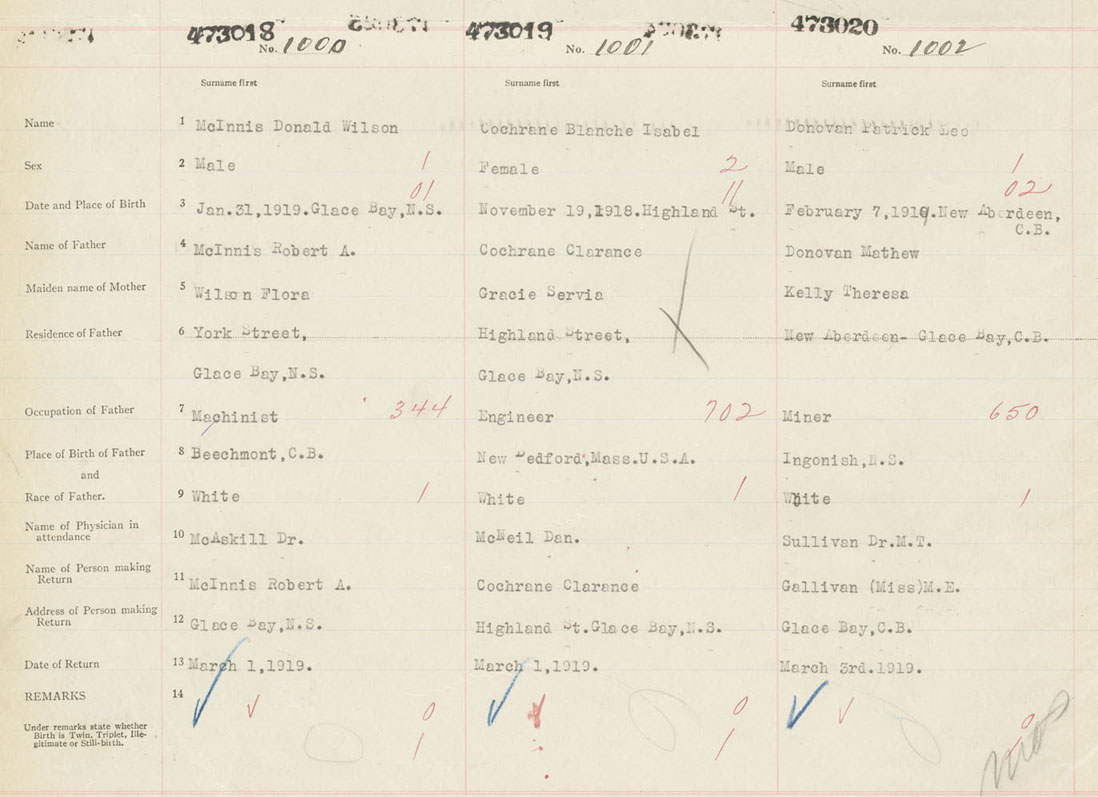 473018 473019 473020
No. 1000 No. 1001 No. 1002
Surname first Surname first Surname first
Name 1 McInnis Donald Wilson Cochrane Blanche Isabel Donovan Patrick Leo
Sex 2 Male 1 Female 2 Male 1
01 11 02
Date and Place of Birth 3 Jan.31,1919.Glace Bay,N.S. November 19,1918.Highland St. February 7,1919.New Aberdeen,
C.B.
Name of Father 4 McInnis Robert A. Cochrane Clarance Donovan Mathew
Maiden name of Mother 5 Wilson Flora Gracie Servia Kelly Theresa
Residence of Father 6 York Street, Highland Street, New Aberdeen- Glace Bay,C.B.
Glace Bay,N.S. Glace Bay,N.S.
Occupation of Father 7 Machinist 344 Engineer 702 Miner 650
Place of Birth of Father 8 Beechmont,C.B. New Bedford,Mass.U.S.A. Ingonish,N.S.
and
Race of Father. 9 White 1 White 1 White 1
Name of Physician in
attendance 10 McAskill Dr. McNeil Dan. Sullivan Dr.M.T.
Name of Person making
Return 11 McInnis Robert A. Cochrane Clarance Gallivan (Miss)M.E.
Address of Person making
Return 12 Glace Bay,N.S. Highland St.Glace Bay,N.S. Glace Bay,C.B.
Date of Return 13 March 1,1919. March 1,1919. March 3rd.1919.
REMARKS 14
0 0 0
Under remarks state whether
Birth is Twin, Triplet, Ille-
gitimate or Still-birth.
1 1